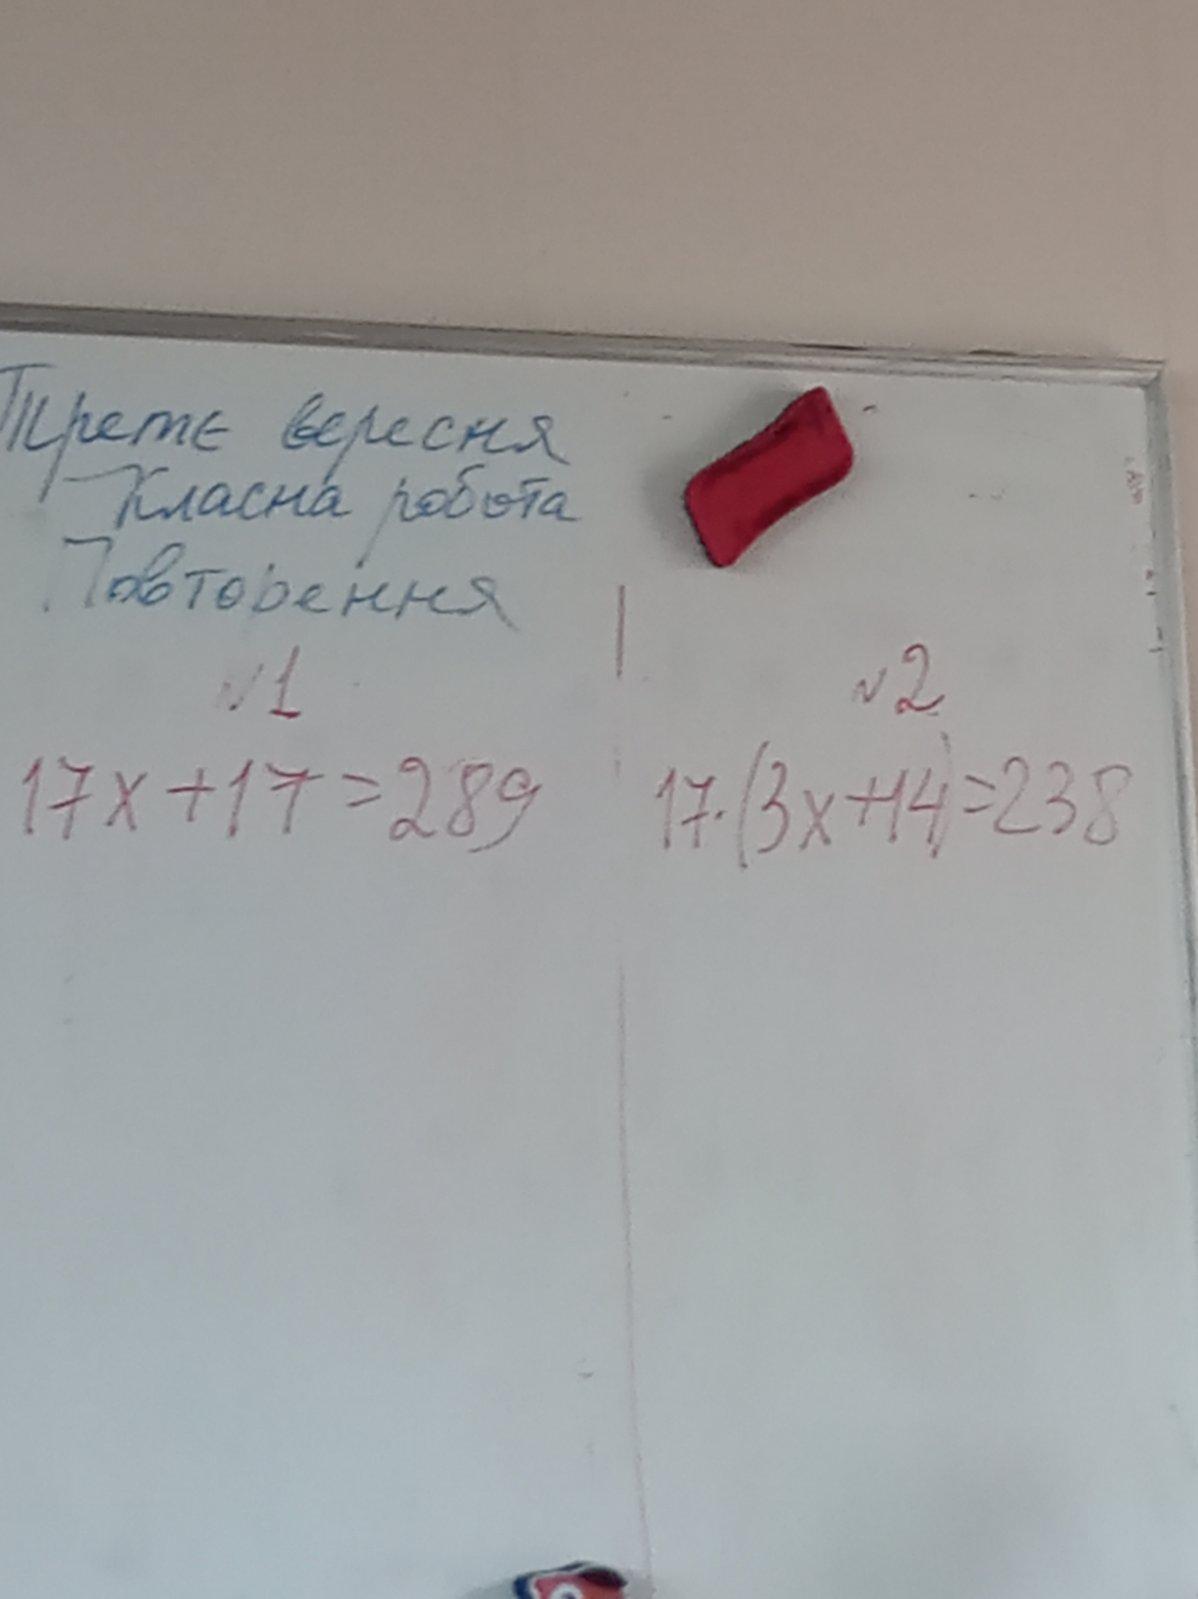 Третє вересня
Класна робота
Повторення
№1
17x+17=289
№2
17·(3x+14)=238